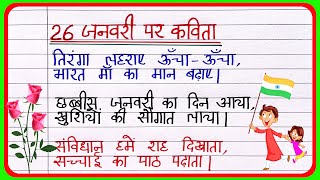 26 जनवरी पर कविता
तिरंगा लहराए ऊँचा-ऊँचा,
भारत माँ का मान बढ़ाए।
छब्बीस जनवरी का दिन आया,
खुशियों की सौगात लाया।
संविधान हमें राह दिखाता,
सच्चाई का पाठ पढ़ाता।